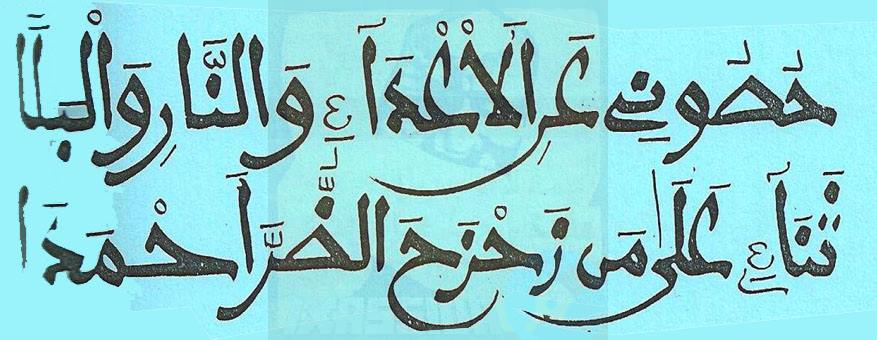 حُصُونِي عَنِ الَاعْدَآءِ وَالنَّارِ وَالْبَلَا
ثَنَآءٌ عَلَى مَن زَحْزَحَ الضُّرَّ اَحْمَدَا